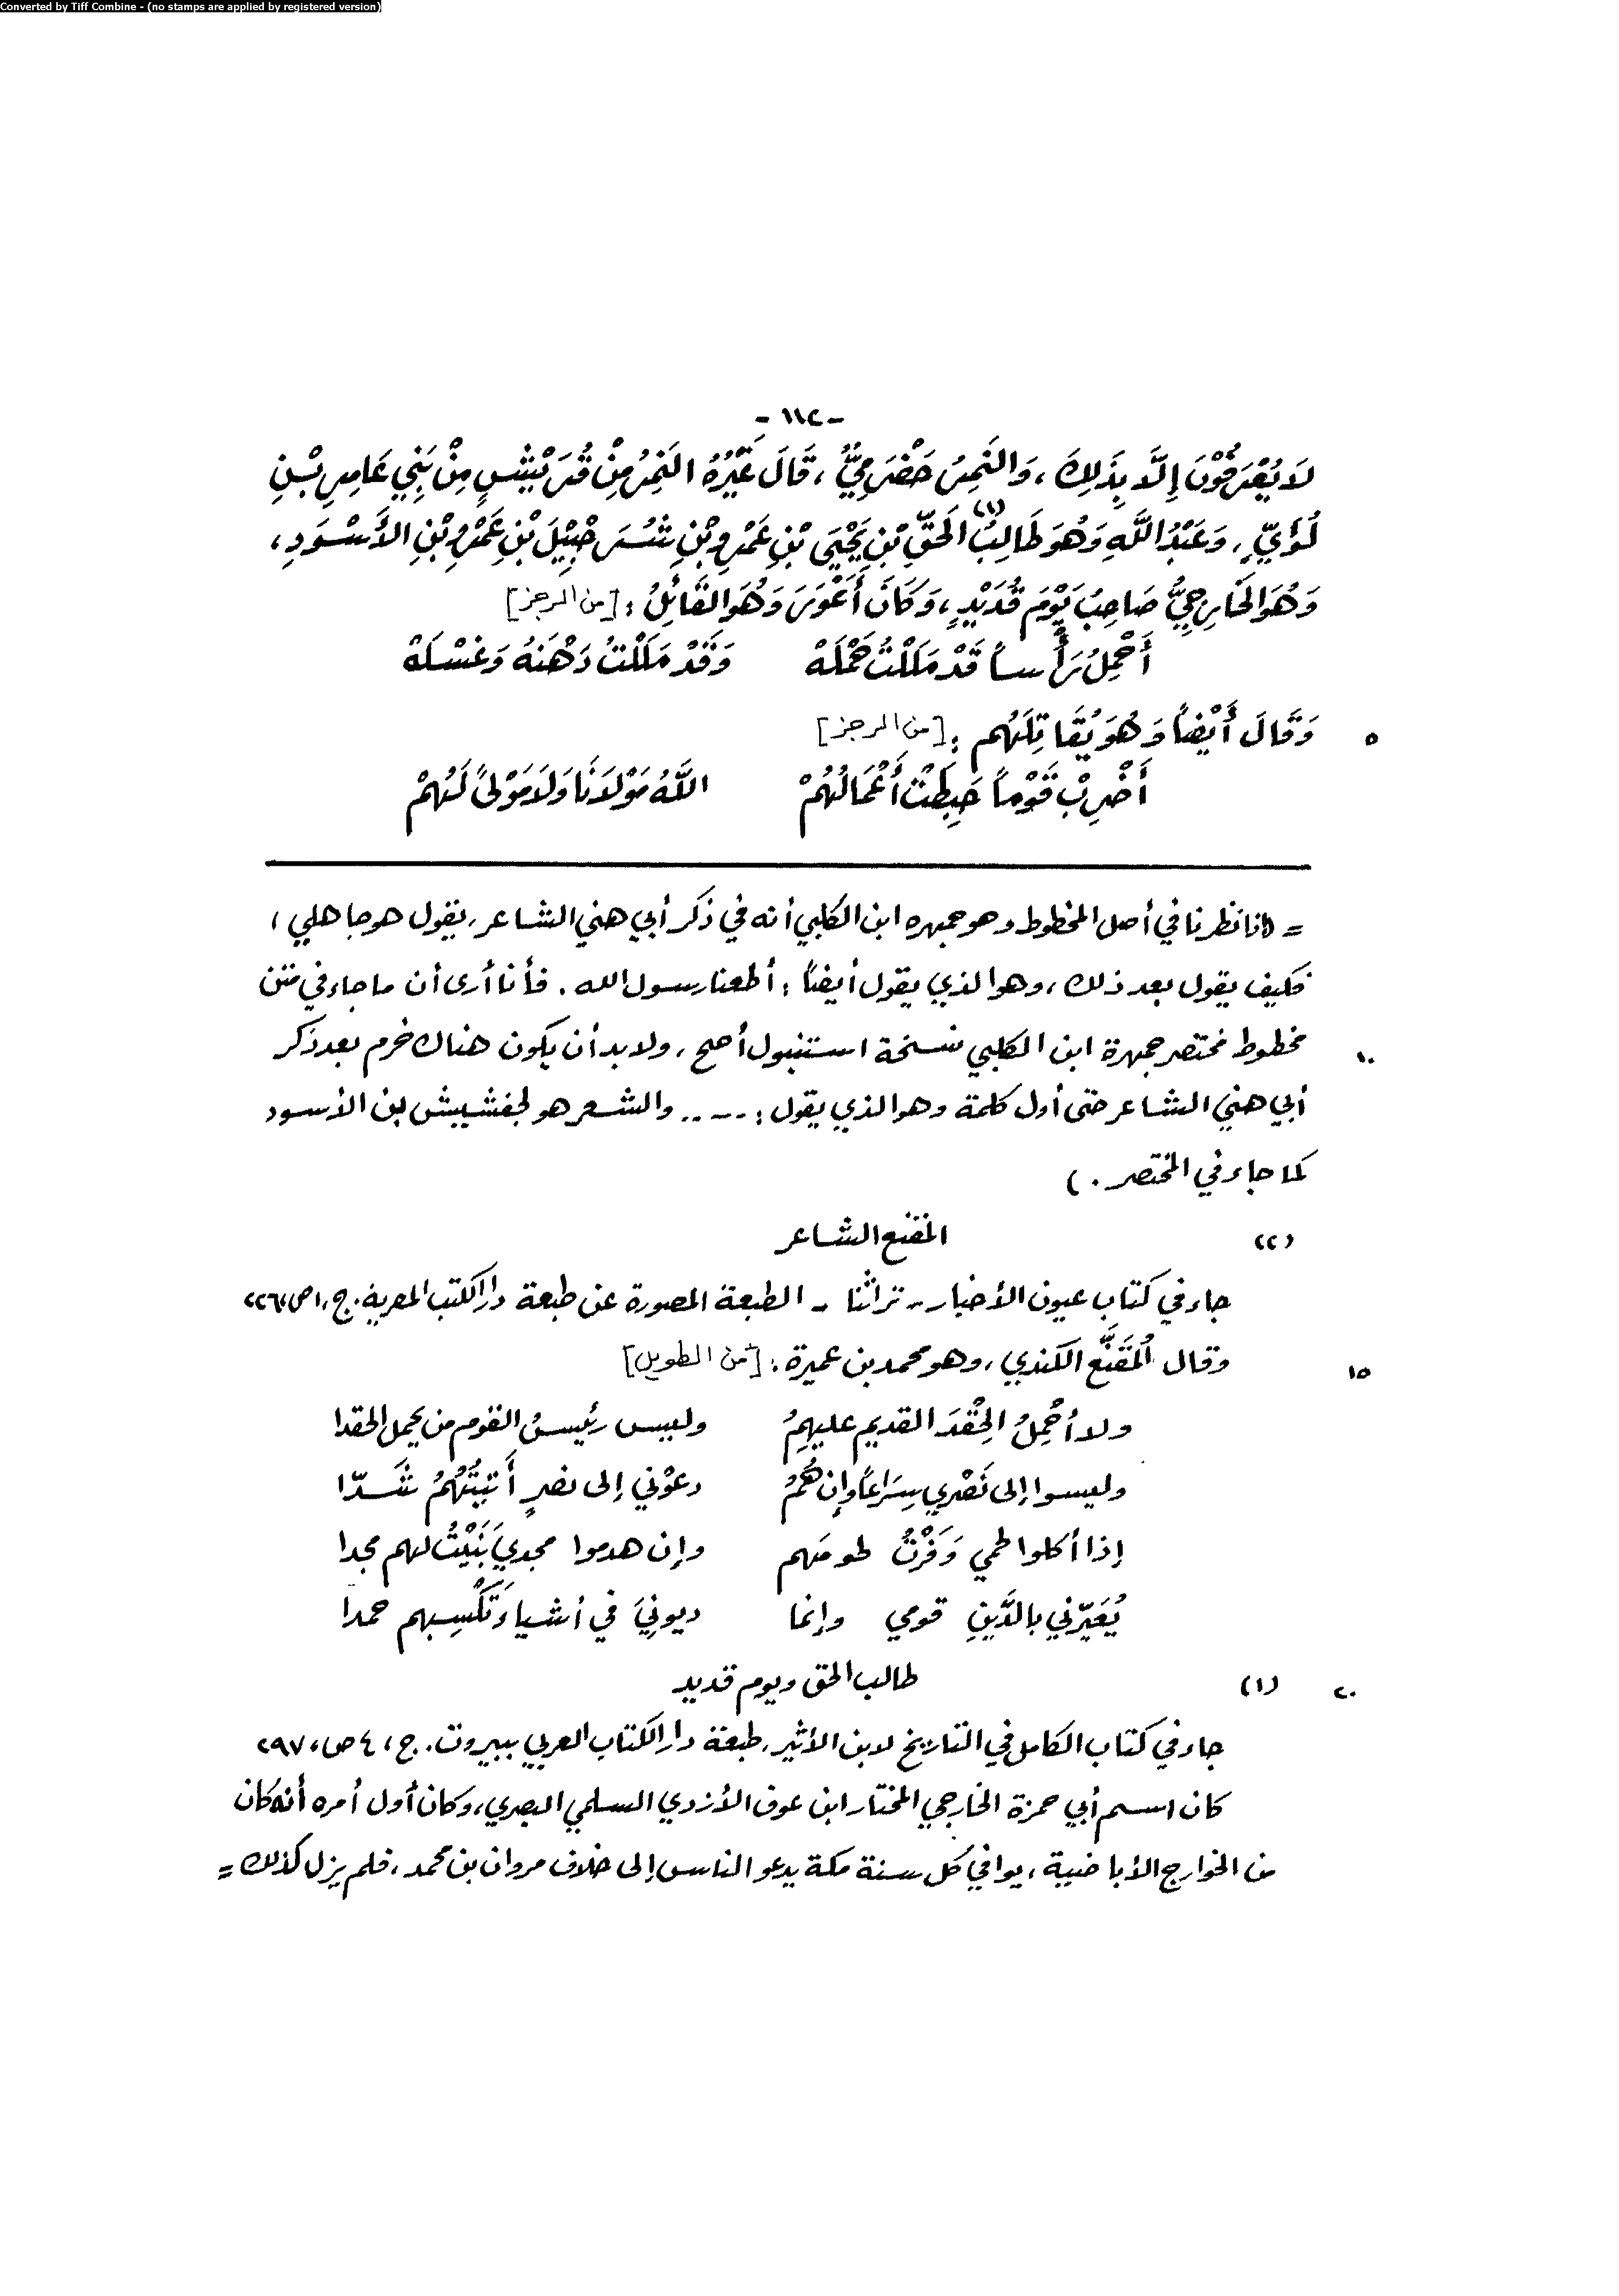 Converted by Tiff Combine - (no stamps are applied by registered version)
- ١١٢ -
لَا يُعْرَفُونَ إِلَّا بِذَلِكَ ، وَالنَّمِرُ حَضْرَمِيٌّ ، قَالَ غَيْرُهُ النَّمِرُ مِنْ قُرَيْشٍ مِنْ بَنِي عَامِرِ بْنِ
لُؤَيٍّ ، وَعَبْدُ اللَّهِ وَهُوَ طَالِبُ (١) الحَقِّ بْنِ يَحْيَى بْنِ عَمْرِو بْنِ شُرَحْبِيْلَ بْنِ عَمْرِو بْنِ الأَسْوَدِ ،
وَهُوَ الخَارِجِيُّ صَاحِبُ يَوْمِ قُدَيْدٍ ، وَكَانَ أَعْوَرَ وَهُوَ القَائِلُ : [من الرجز]
أَحْمِلُ رَأْساً قَدْ مَلَلْتُ حَمْلَهْ وَقَدْ مَلَلْتُ دَهْنَهُ وَغَسْلَهْ
٥ وَقَالَ أَيْضاً وَهُوَ يُقَاتِلُهُم : [من الرجز]
أَضْرِبُ قَوْماً حَبِطَتْ أَعْمَالُهُمْ اللَّهُ مَوْلَانَا وَلَا مَوْلىً لَهُمْ
= لأننا نظرنا في أصل المخطوط وهو جمهرة ابن الكلبي أنه في ذكر أبي هني الشاعر ، يقول هو جاهلي ،
فكيف يقول بعد ذلك ، وهو الذي يقول أيضاً : أطعنا رسول الله . فأنا أرى أن ما جاء في متن
١٠ مخطوط مختصر جمهرة ابن الكلبي نسخة استنبول أصح ، ولا بد أن يكون هناك خرم بعد ذكر
أبي هني الشاعر حتى أول كلمة وهو الذي يقول : .... والشعر هو لجفشيش بن الأسود
كما جاء في المختصر . )
(٢) المقنع الشاعر
جاء في كتاب عيون الأخبار - تراثنا - الطبعة المصورة عن طبعة دار الكتب المصرية . ج ، ١ ص ، ٢٢٦
١٥ وقال المُقَنَّع الكندي ، وهو محمد بن عميرة : [من الطويل]
ولا أَحْمِلُ الحِقْدَ القديم عليهِمُ وليس رئيسُ القوم من يحمل الحقدا
وليسوا إلى نَصْري سِرَاعاً وإن هُمُ دعوْني إلى نصرٍ أَتَيْتُهُمُ شَدّا
إذا أكلوا لحمي وَفَرْتُ لحومَهم وإن هدموا مجدي بَنَيْتُ لهم مجدا
يُعَيِّرني بالدَّيْنِ قومي وإنما ديونيَ في أشياءَ تَكْسِبهم حمدا
٢٠ (١) طالب الحق ويوم قديد
جاء في كتاب الكامل في التاريخ لابن الأثير ، طبعة دار الكتاب العربي ببيروت . ج ، ٤ ص ، ٢٩٧
كان اسم أبي حمزة الخارجي المختار ابن عوف الأزدي السلمي البصري ، وكان أول أمره أنه كان
من الخوارج الأباضية ، يوافي كل سنة مكة يدعو الناس إلى خلاف مروان بن محمد ، فلم يزل كذلك =